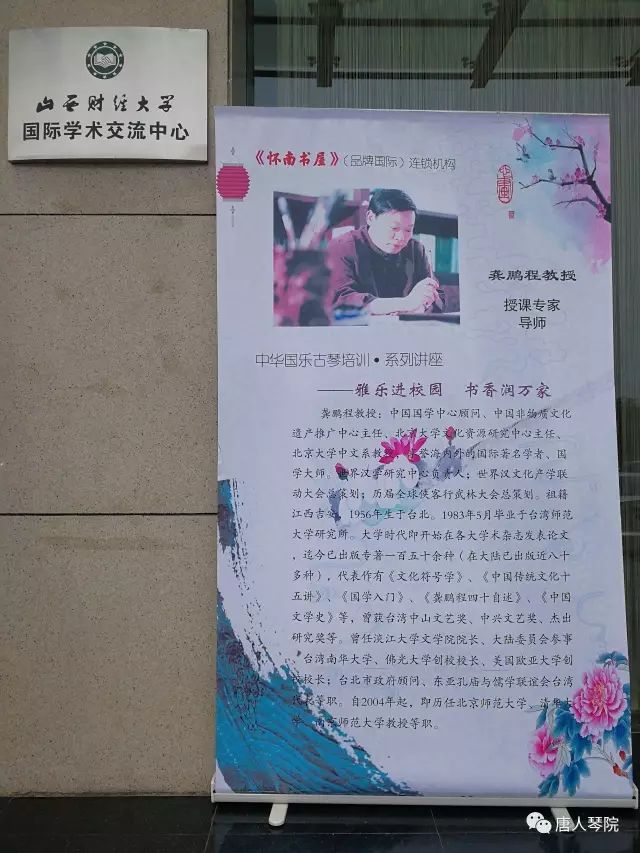 山西财经大学
国际学术交流中心
《怀南书屋》（品牌国际）连锁机构
龚鹏程教授
授课专家
导师
中华国乐古琴培训·系列讲座
——雅乐进校园 书香润万家
龚鹏程教授：中国国学中心顾问、中国非物质文化
遗产推广中心主任、北京大学文化资源研究中心主任、
北京大学中文系教授，享誉海内外的国际著名学者、国
学大师。世界汉学研究中心负责人；世界汉文化产学联
动大会总策划；历届全球侠客行武林大会总策划。祖籍
江西吉安，1956年生于台北。1983年5月毕业于台湾师范
大学研究所。大学时代即开始在各大学术杂志发表论文
，迄今已出版专著一百五十余种（在大陆已出版近八十
多种），代表作有《文化符号学》、《中国传统文化十
五讲》、《国学入门》、《龚鹏程四十自述》、《中国
文学史》等，曾获台湾中山文艺奖、中兴文艺奖、杰出
研究奖等。曾任淡江大学文学院院长、大陆委员会参事
、台湾南华大学、佛光大学创校校长、美国欧亚大学创
校校长；台北市政府顾问、东亚孔庙与儒学联谊会台湾
代表等职。自2004年起，即历任北京师范大学、清华大
学、南京师范大学教授等职。
唐人琴院